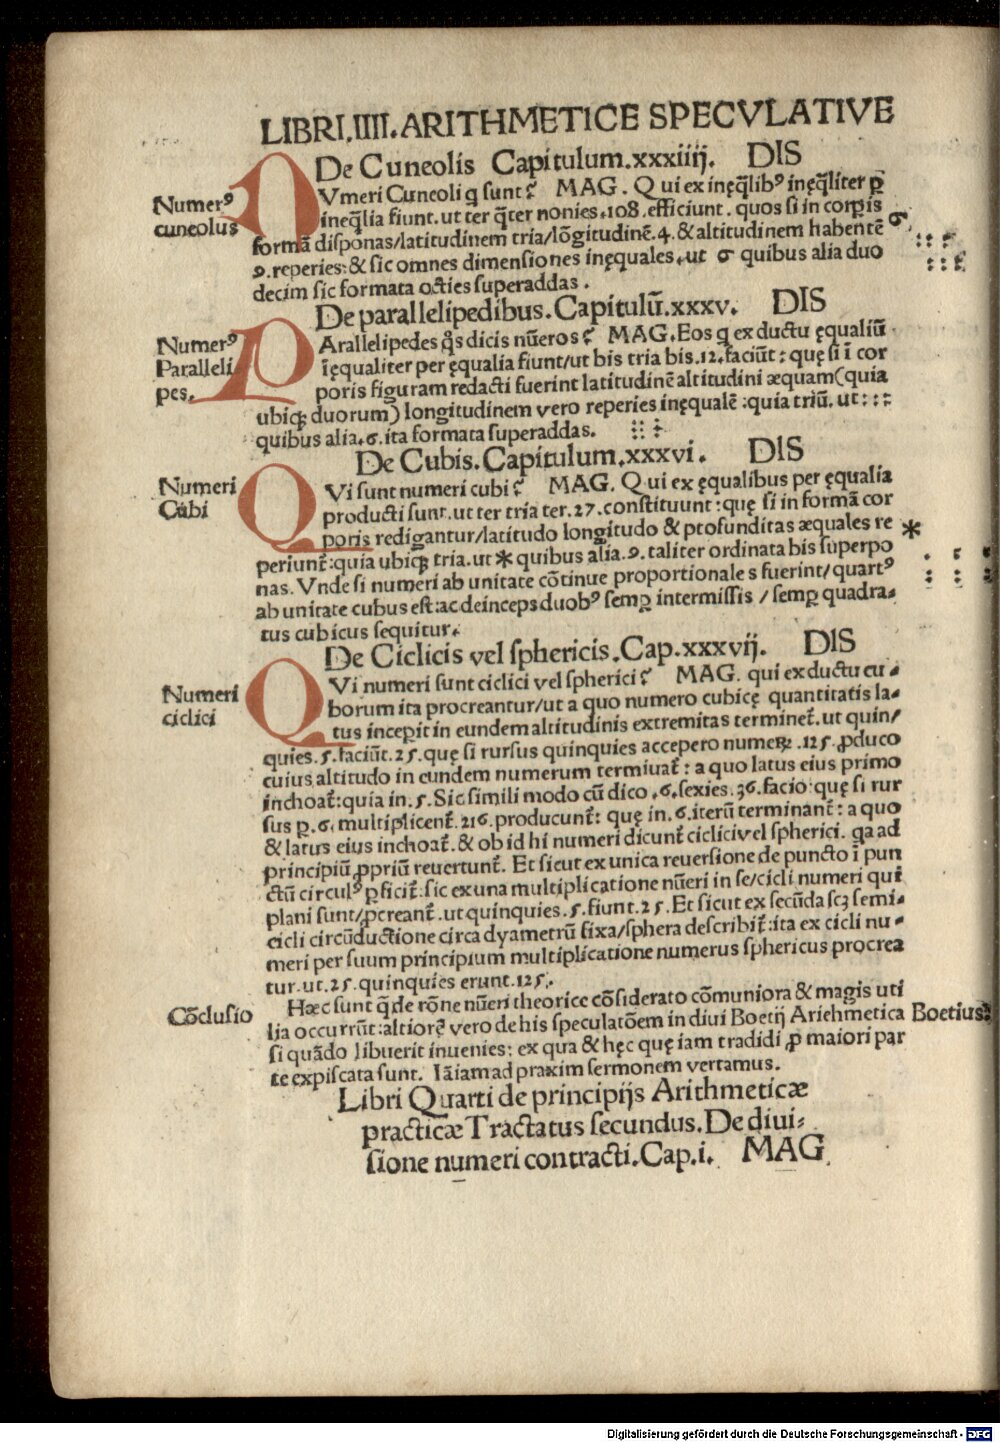 LIBRI.IIII.ARITHMETICE SPECVLATIVE
De Cuneolis Capitulum.xxxiiij. DIS
Numerꝰ
cuneolus
NVmeri Cuneoli q̄ sunt? MAG. Qui ex inęq̄libꝰ inęq̄liter ꝑ
ineq̄lia fiunt.ut ter q̄ter nonies.108.efficiunt. quos si in corꝑis
formā disponas/latitudinem tria/lōgitudinē.4.& altitudinem habentē
9.reperies:& sic omnes dimensiones inęquales.ut σ quibus alia duo
decim sic formata octies superaddas.
De parallelipedibus.Capitulū.xxxv. DIS
Numerꝰ
Paralleli
pes.
PArallelipedes q̄s dicis nūeros? MAG.Eos q̄ ex ductu ęqualiū
īęqualiter per ęqualia fiunt/ut bis tria bis.12.faciūt: quę si ī cor
poris figuram redacti fuerint latitudinē altitudini æquam(quia
ubiqꝫ duorum) longitudinem vero reperies inęqualē:quia triū. ut
quibus alia.6.ita formata superaddas.
De Cubis.Capitulum.xxxvi. DIS
Numeri
Cubi
QVi sunt numeri cubi? MAG. Qui ex ęqualibus per ęqualia
producti sunt.ut ter tria ter.27.constituunt:quę si in formā cor
poris redigantur/latitudo longitudo & profunditas æquales re
periunt̄:quia ubiqꝫ tria.ut * quibus alia.9.taliter ordinata bis superpo
nas. Vnde si numeri ab unitate cōtinue proportionales fuerint/quartꝰ
ab unitate cubus est:ac deinceps duobꝰ semꝑ intermissis / semꝑ quadra-
tus cubicus sequitur.
De Ciclicis vel sphericis.Cap.xxxvij. DIS
Numeri
ciclici
QVi numeri sunt ciclici vel spherici? MAG. qui ex ductu cu-
borum ita procreantur/ut a quo numero cubicę quantitatis la-
tus incepit in eundem altitudinis extremitas terminet̄.ut quin/
quies.5.faciūt.25.quę si rursus quinquies accepero numeꝝ.125.ꝓduco
cuius altitudo in eundem numerum termiuat̄: a quo latus eius primo
inchoat̄:quia in.5.Sic simili modo cū dico.6.sexies.36.facio:quę si rur
sus ꝑ.6.multiplicent̄.216.producunt̄: quę in.6.iterū terminant̄: a quo
& latus eius inchoat̄.& ob id hi numeri dicunt̄ ciclici vel spherici. q̄a ad
principiū ꝓpriū reuertunt̄. Et sicut ex unica reuersione de puncto ī pun
ctū circulꝰ ꝑficit̄:sic ex una multiplicatione nūeri in se/cicli numeri qui
plani sunt/ꝓcreant̄.ut quinquies.5.fiunt.25.Et sicut ex secūda scꝫ semi-
cicli circūductione circa dyametrū fixa/sphera describit̄:ita ex cicli nu-
meri per suum principium multiplicatione numerus sphericus procrea
tur.ut.25.quinquies erunt.125.
Cōclusio
Hæc sunt q̄ de rōne nūeri theorice cōsiderato cōmuniora & magis uti
lia occurrūt:altiorē vero de his speculatōem in diui Boetij Ariehmetica
Boetius
si quādo libuerit inuenies: ex qua & hęc quę iam tradidi ꝓ maiori par
te expiscata sunt. Iā iam ad praxim sermonem vertamus.
Libri Quarti de principijs Arithmeticæ
practicæ Tractatus secundus.De diui-
sione numeri contracti.Cap.i. MAG
Digitalisierung gefördert durch die Deutsche Forschungsgemeinschaft - DFG